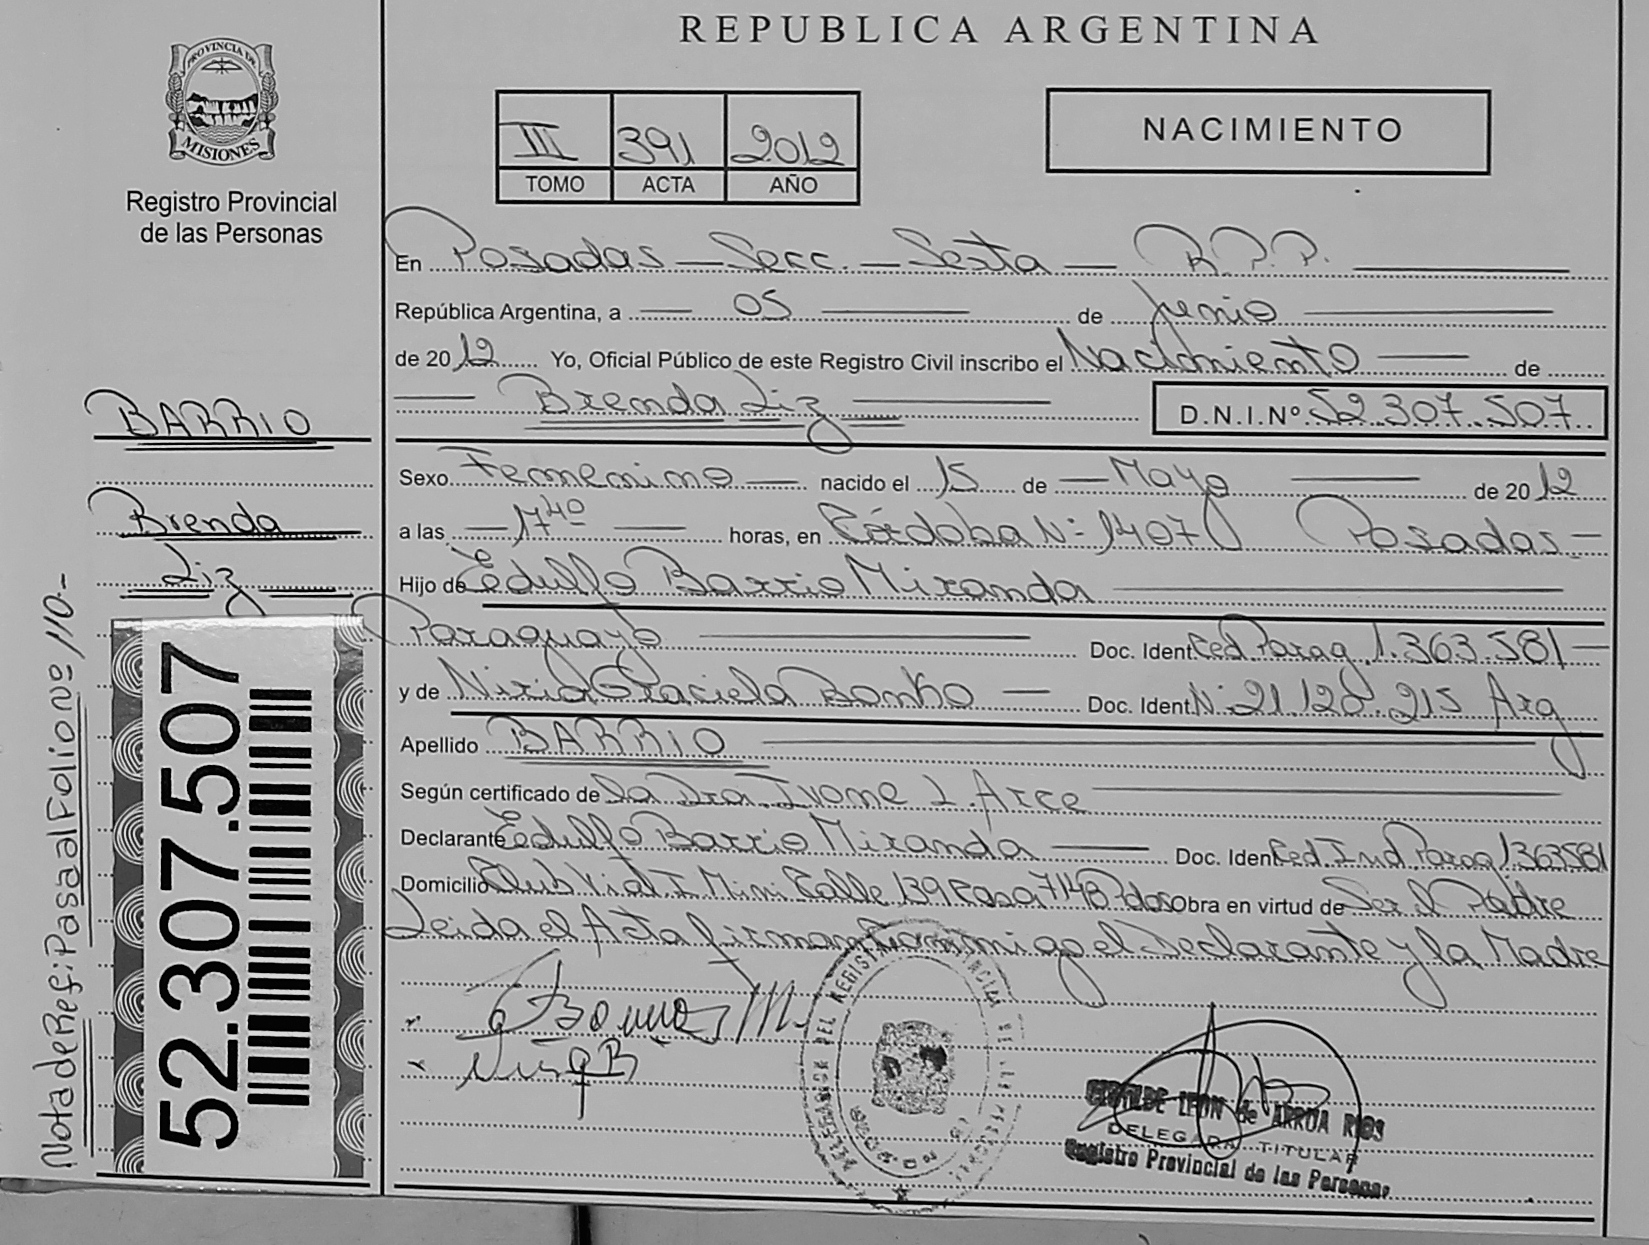 REPUBLICA ARGENTINA
PROVINCIA DE
MISIONES
Registro Provincial
de las Personas
III 391 2012
TOMO ACTA AÑO
NACIMIENTO
En Posadas — Secc. — Sexta — R.P.P. —
República Argentina, a — 05 — de Junio —
de 2012 Yo, Oficial Público de este Registro Civil inscribo el Nacimiento — de
— Brenda Liz — D.N.I.Nº 52.307.507.
BARRIO
Brenda
Liz
Sexo Femenino — nacido el 15 de — Mayo — de 2012
a las — 17 40 — horas, en Córdoba Nº 1407 Posadas —
Hijo de Eedulfo Barrio Miranda —
Paraguayo — Doc. Ident. Ced Parag. 1.363.581 —
y de Graciela — Doc. Ident. Nº 21.120.215 Arg
Apellido BARRIO —
Según certificado de la Dra. Ivonne L. Arce —
Declarante Eedulfo Barrio Miranda — Doc. Iden Ced. Ind. Parag 1363581
Domicilio Calle 139 Casa 7148 Pdas Obra en virtud de Ser el Padre
Leida el Acta firman conmigo el Declarante y la Madre
52.307.507
Nota de Ref: Pasa al Folio nº 110.-
LEON de ARRUA RIOS
DELEGADA TITULAR
Registro Provincial de las Personas